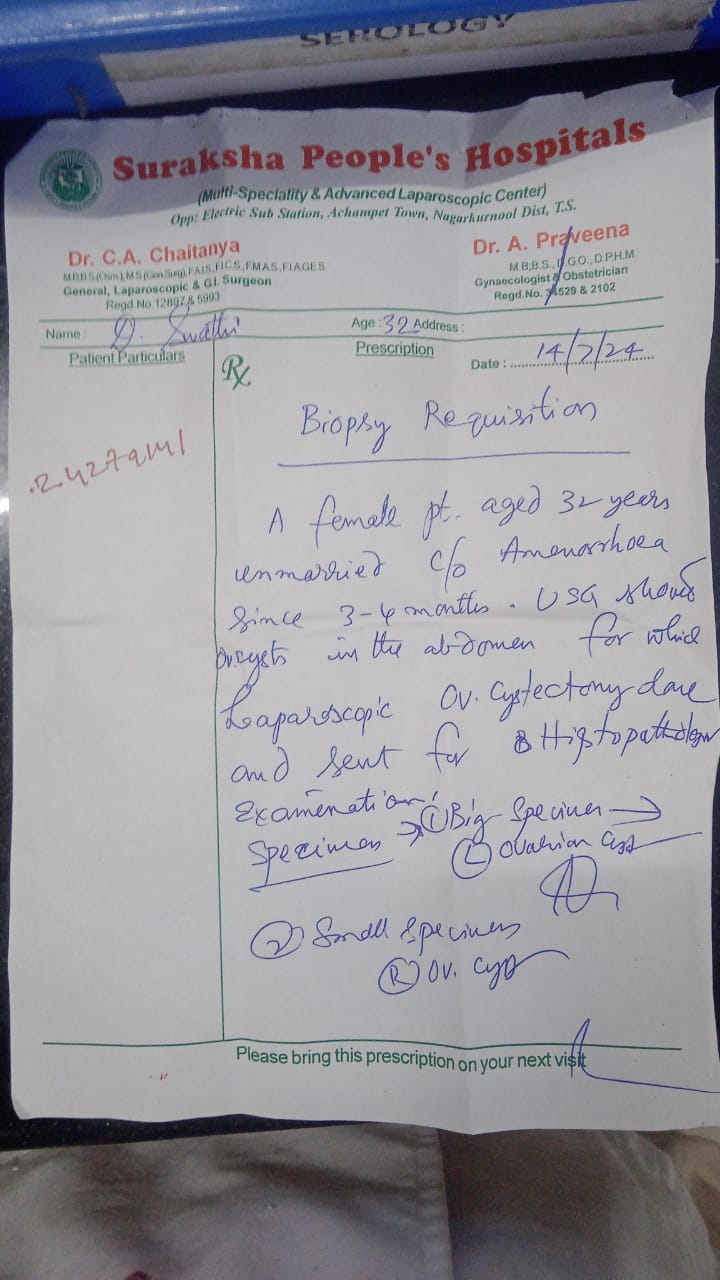 SEROLOGY
Suraksha People's Hospitals
(Multi-Speciality & Advanced Laparoscopic Center)
Opp: Electric Sub Station, Achampet Town, Nagarkurnool Dist, T.S.
Dr. C.A. Chaitanya
M.B.B.S (Osm), M.S (Gen.Surg), FAIS, FICS, FMAS, FIAGES
General, Laparoscopic & GI. Surgeon
Regd.No. 12897 & 5993
Dr. A. Praveena
M.B.B.S., D.G.O., D.P.H.M.
Gynaecologist & Obstetrician
Regd.No. 34529 & 2102
Name : D. Swathi Age : 32 Address :
Patient Particulars Prescription Date : 14/7/24
Rx
Biopsy Requisition
A female pt. aged 32 years
unmarried c/o Amenorrhoea
since 3-4 months. USG shows
Ov.cysts in the abdomen for which
Laparoscopic Ov. Cystectomy done
and sent for Histopathology
Examination!
Specimen → ① Big Specimen →
Ⓛ Ovarian Cyst
② Small Specimen
Ⓡ Ov. Cyst
Please bring this prescription on your next visit